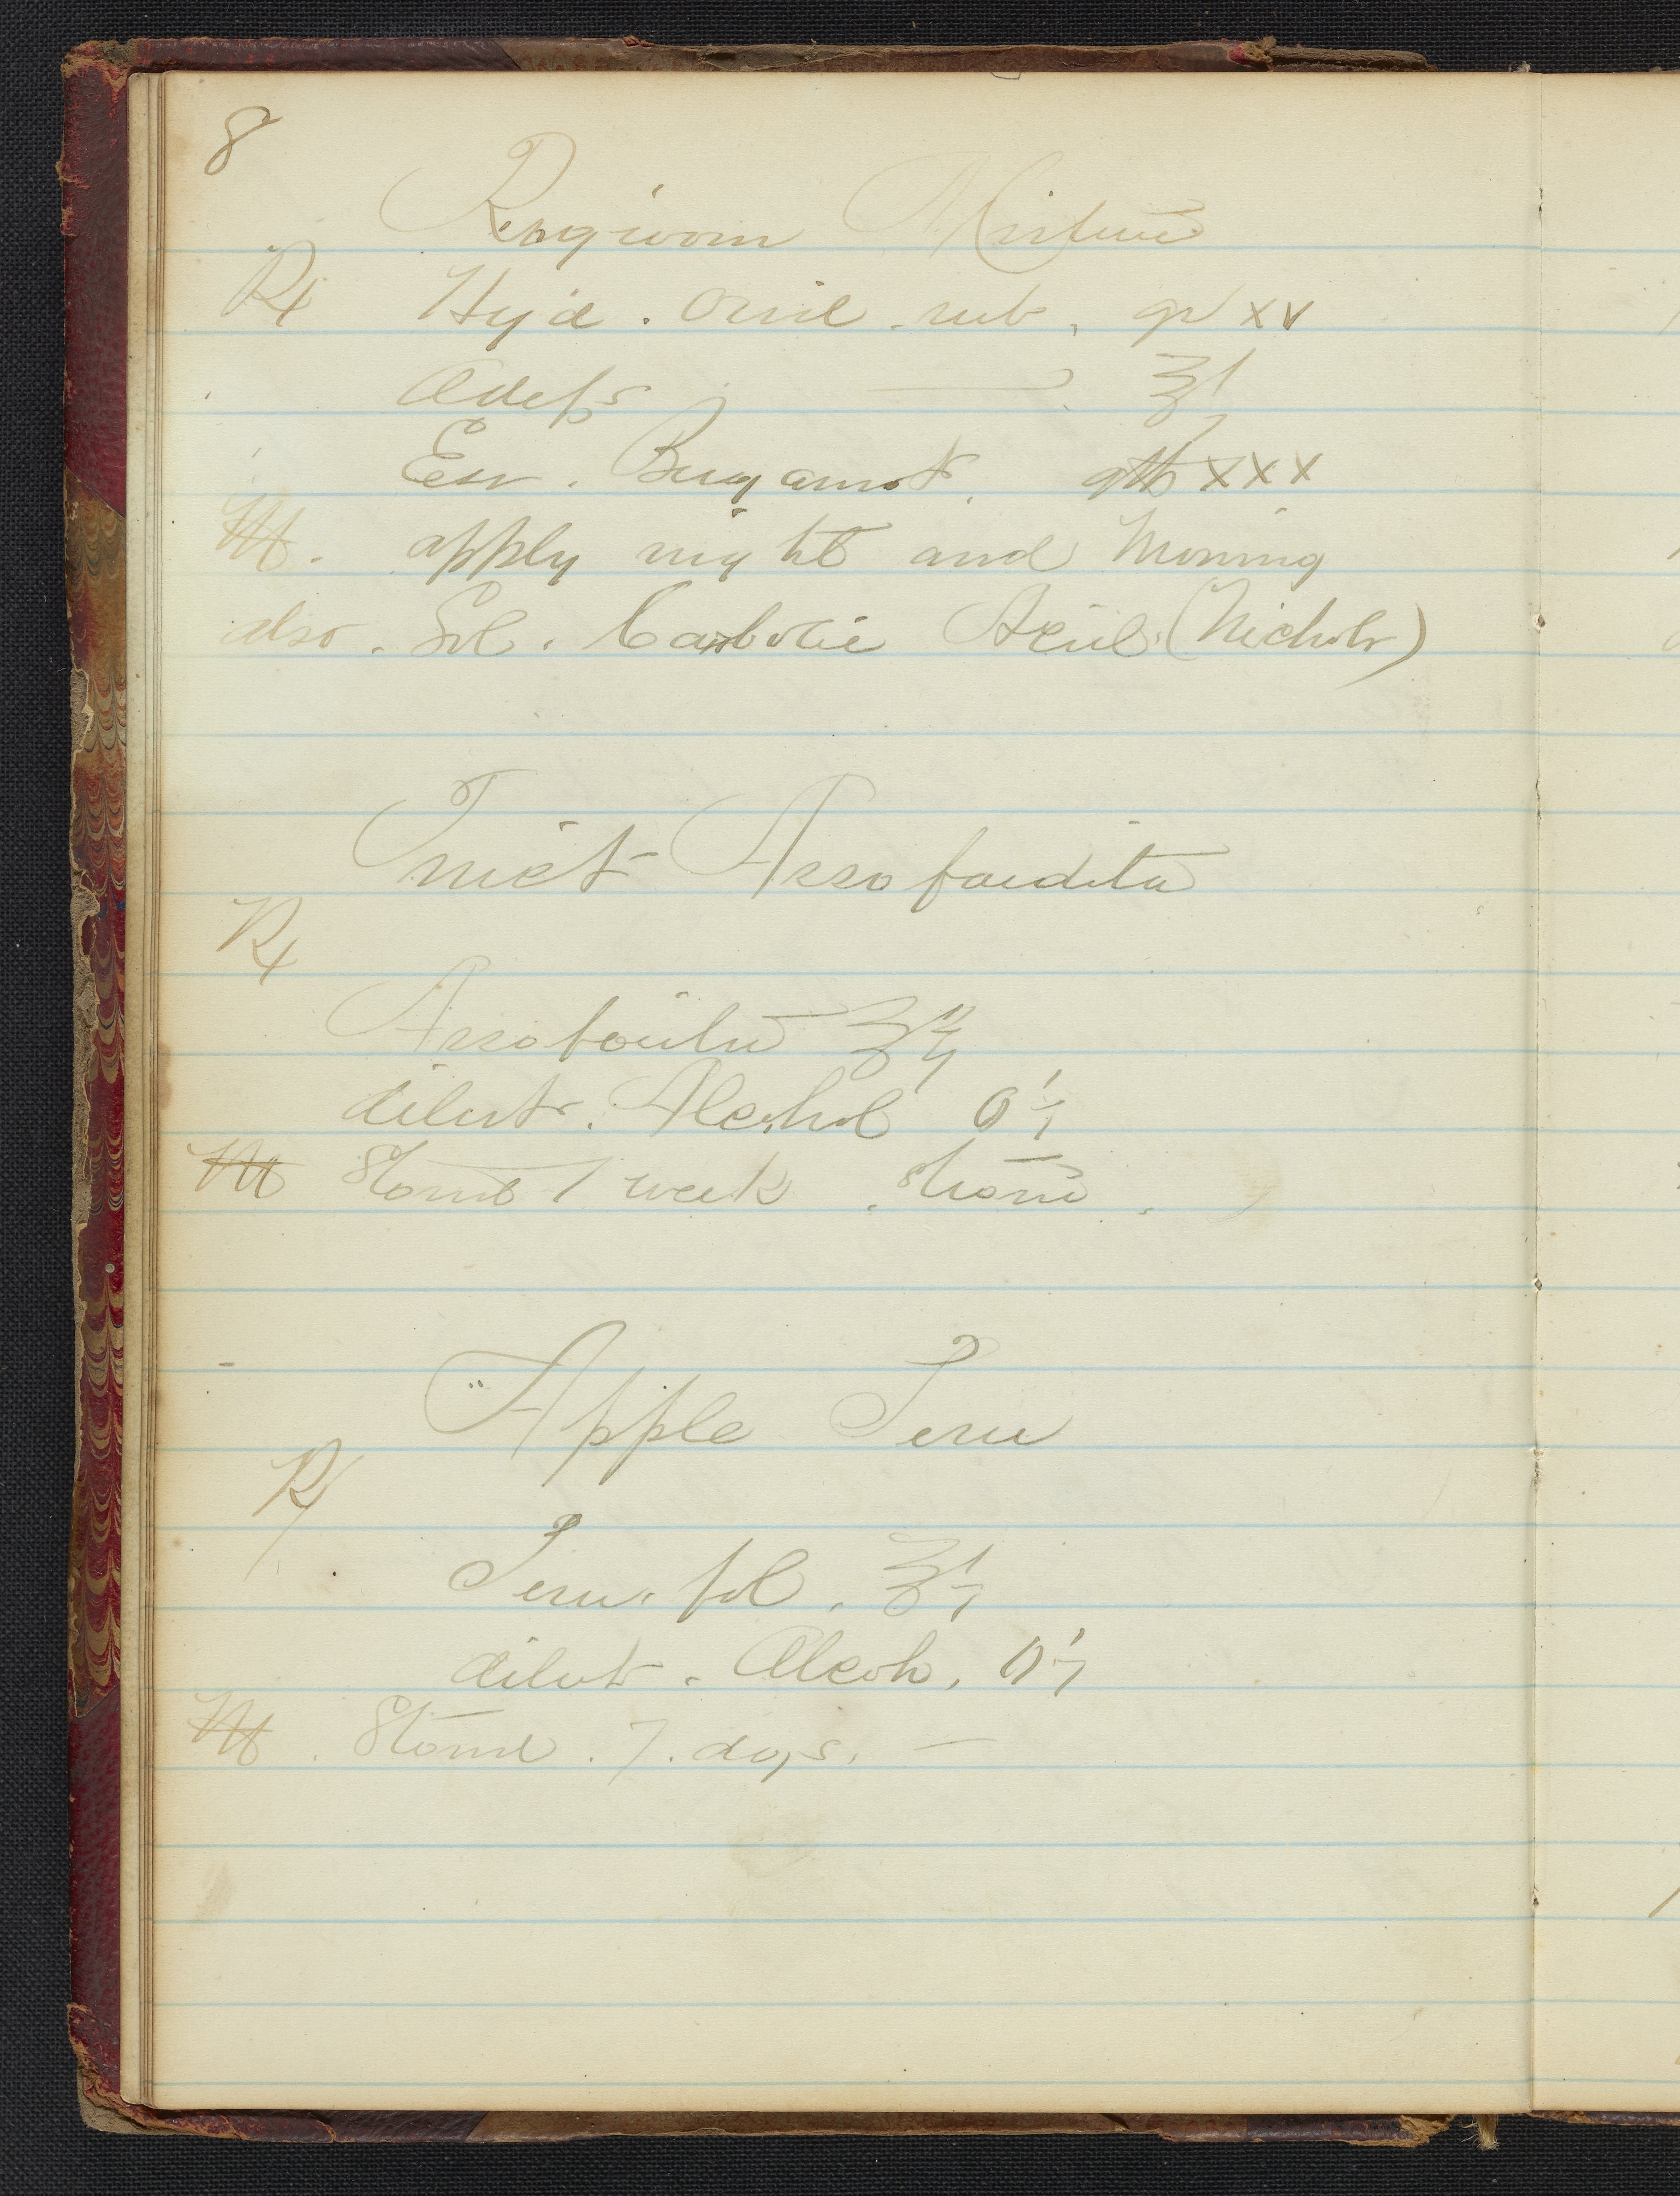 8
Ringworm Mixture
Rx Hyd. Oxid. rub. gr xv
Adeps ℥i
Ess. Bergamot. gtts xxx
M. apply night and Morning
also. Sol. Carbolic Acid. (Nichols)
Tinct Assafoedita
Rx
Assafoeita ℥ii
dilut. Alcohol Oi
M Stand 1 week. strain.
Apple Peru
Rx
Peru. fol. ℥i
dilut. Alcoh. Oi
M. Stand. 7. days. —